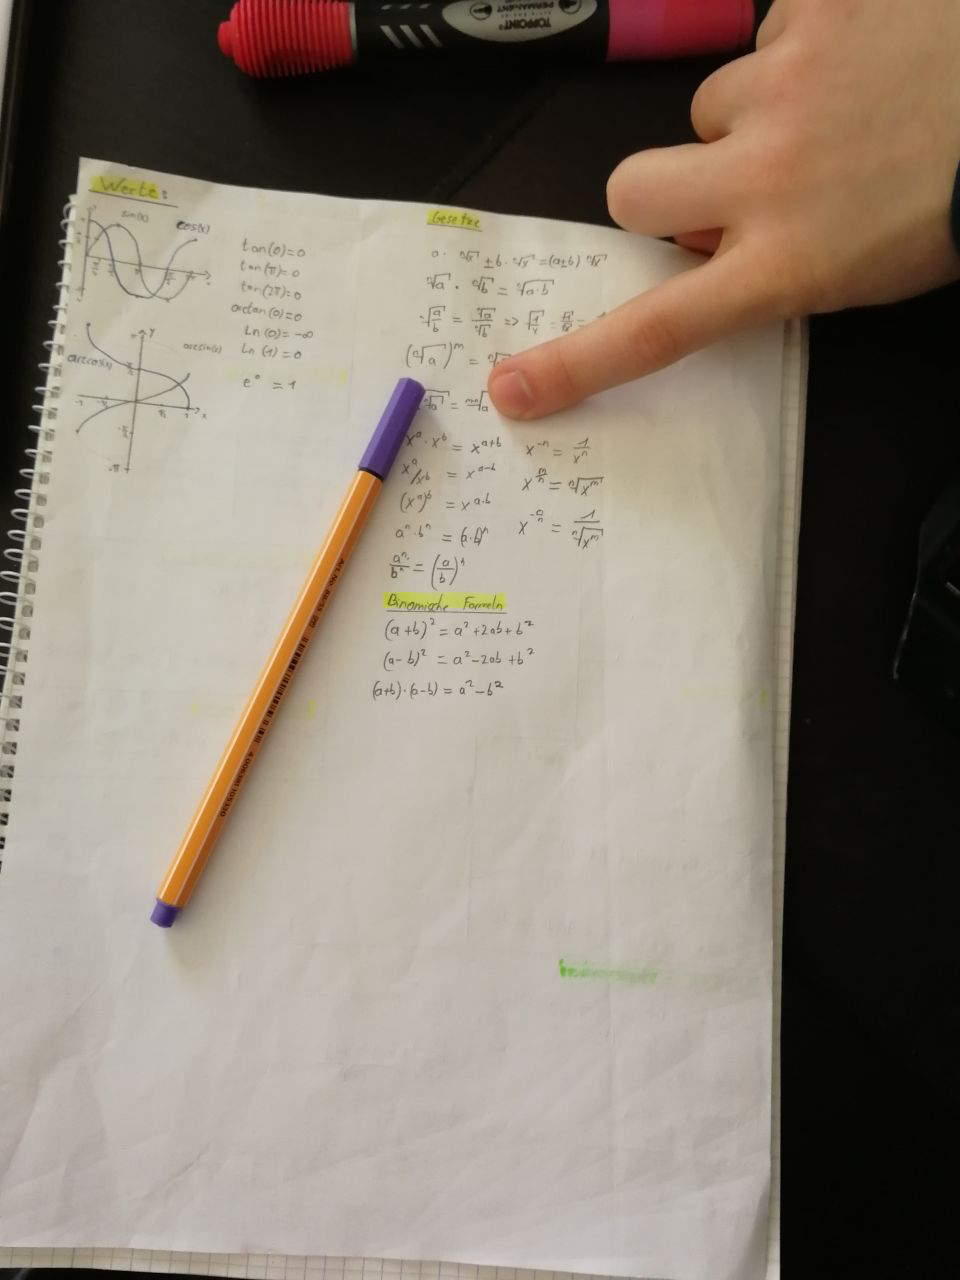 TOPPOINT
PERMANENT
Werte:
sin(x)
cos(x)
tan(0)=0
tan(π)=0
tan(2π)=0
arctan(0)=0
Ln(0)=-∞
Ln(1)=0
e⁰ = 1
y
arcsin(x)
arccos(x)
x
Gesetze
a · ⁿ√x ± b · ⁿ√x = (a±b) ⁿ√x
ⁿ√a · ⁿ√b = ⁿ√a·b
ⁿ√a/b = ⁿ√a/ⁿ√b =>
(ⁿ√a)ᵐ =
ⁿ√a = ᵐ·ⁿ√a
xᵃ · xᵇ = xᵃ⁺ᵇ
xᵃ/xᵇ = xᵃ⁻ᵇ
(xᵃ)ᵇ = xᵃ·ᵇ
aⁿ · bⁿ = (a·b)ⁿ
aⁿ/bⁿ = (a/b)ⁿ
x⁻ⁿ = 1/xⁿ
x^(m/n) = ⁿ√xᵐ
x^(-a/n) = 1/ⁿ√xᵐ
Binomische Formeln
(a+b)² = a² + 2ab + b²
(a-b)² = a² - 2ab + b²
(a+b)·(a-b) = a² - b²